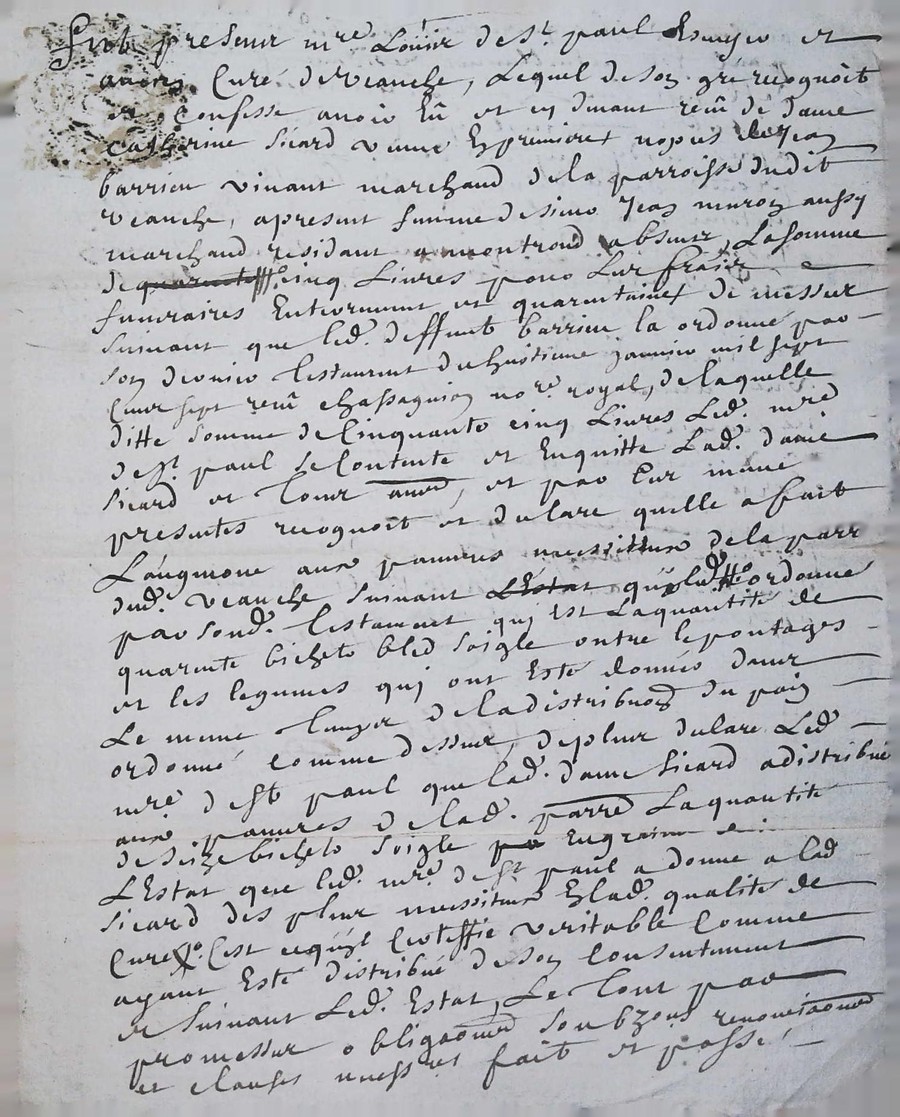 Fut present mre Louis de St. paul Escuyer et
ancien Curé de veauche, Lequel de son gré recognoit
et Confesse avoir Eu et cy divant receu de dame
Catherine Sicard veuve En premieres nopces de Jean
barrieu vivant marchand de la parroisse dudit
veauche, apresent femme de sieur Jean muron aussy
marchand residant a montrond absente, La somme
de cinq Livres pour Les fraix
funeraires Enterrement et quarentaines de messes
suivant que led. deffunt barrieu la ordonné par
son dernier testament du huitieme janvier mil sept
Cents sept receu chassagnion nore. royal, de laquelle
ditte somme de Cinquante cinq Livres Led. mre
de St. paul se Contente et Enquitte Lad. dame
Sicard et tous, et par Ces mesme
presentes recognoit et declare quelle a fait
L'augmone aux pauvres necessiteux de la parr
dud. veauche suivant L'Estat quil ordonné
par sond. testament qui Est La quantité de
quarente bichets bled soigle outre le pontages
et les legumes qui ont Esté donnés dans
Le mesme temps de la distribuon du pain
ordonné Comme dessus, de plus declare Led.
mre de St paul que lad. dame Sicard a distribué
aux pauvres de lad. parre La quantité
de seize bichets soigle En graine
L'Estat que led. mre. de St paul a donné a lad
Sicard des plus necessiteux En lad. qualité de
Curé. C'est ce quil Certiffie veritable Comme
ayant Esté distribué de son Consentement
et suivant Led. Estat, Le tout par
promesses obligaons soubzons renonciaons
et clauses necessres fait et passé